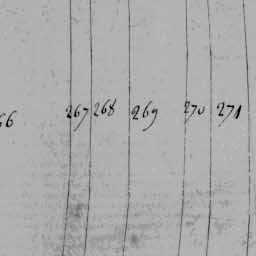 66 267 268 269 270 271